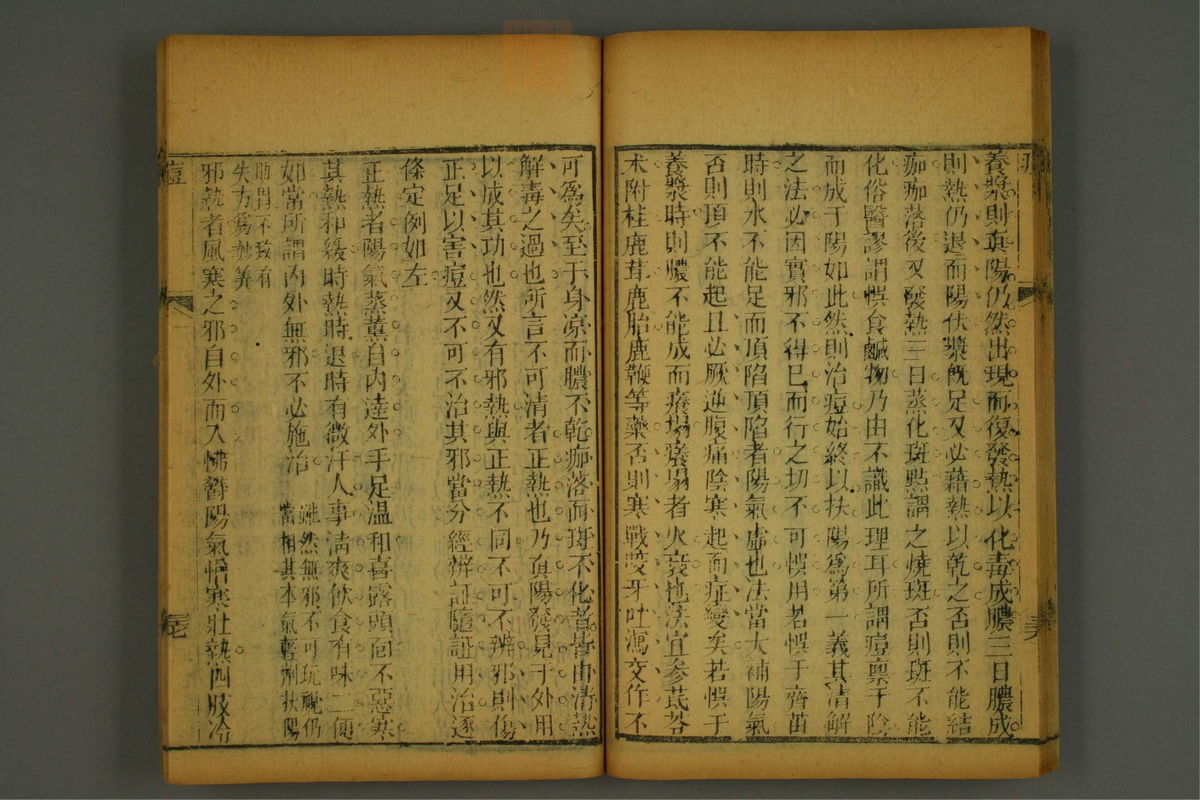 養漿則眞陽仍然出現而復發熱以化毒成膿三日膿成
則熱仍退而陽伏漿旣足又必藉熱以乾之否則不能結
痂痂落後又發熱三日蒸化斑點謂之燒斑否則斑不能
化俗醫謬謂悞食鹹物乃由不識此理耳所謂痘稟于陰
而成于陽如此然則治痘始終以扶陽爲第一義其清解
之法必因實邪不得已而行之切不可悞用若悞于齊苗
時則水不能足而頂陷頂陷者陽氣虛也法當大補陽氣
否則頂不能起且必厥逆腹痛陰寒起而症變矣若悞于
養漿時則膿不能成而癢塌癢塌者火衰也法宜參芪苓
朮附桂鹿茸鹿胎鹿鞭等藥否則寒戰咬牙吐瀉交作不
可爲矣至于身凉而膿不乾痂落而斑不化者皆由清熱
解毒之過也所言不可清者正熱也乃眞陽發見于外用
以成其功也然又有邪熱與正熱不同不可不辨邪則傷
正足以害痘又不可不治其邪當分經辨証隨証用治逐
條定例如左
正熱者陽氣蒸薰自內達外手足温和喜露頭面不惡寒
其熱和緩時熱時退時有微汗人事清爽飲食有味二便
如常所謂內外無邪不必施治
雖然無邪不可玩視仍
當相其本氣輕劑扶陽
助胃不致有
失方爲妙筭
邪熱者風寒之邪自外而入怫鬱陽氣憎寒壯熱四肢冷
痘